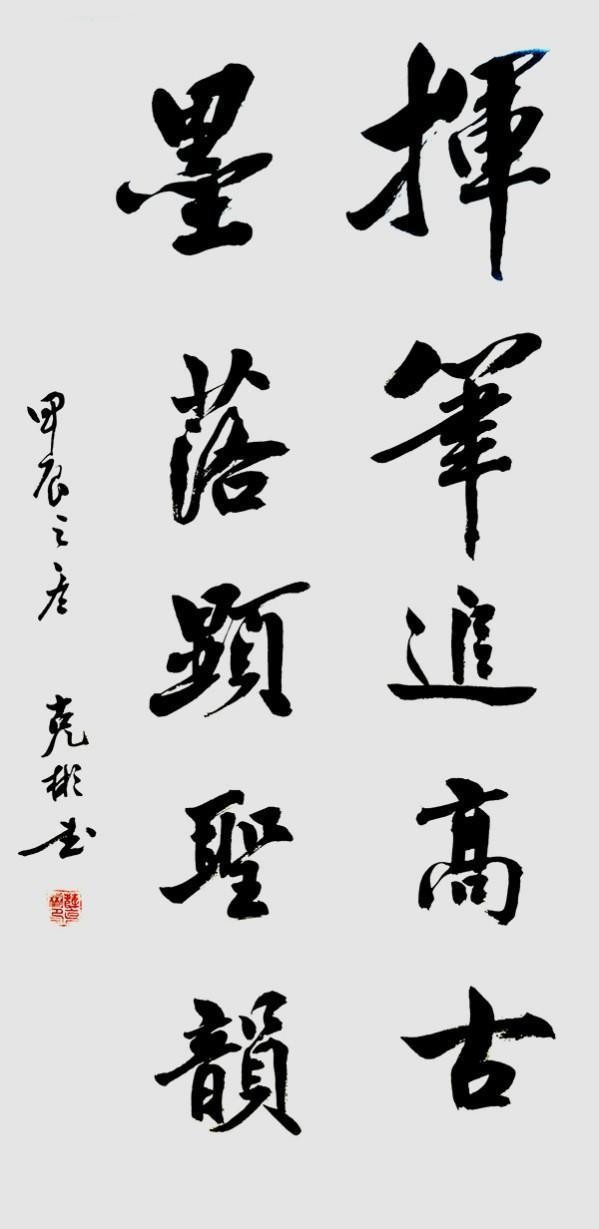 揮筆追高古
墨落顯聖韻
甲辰之春 克彬书